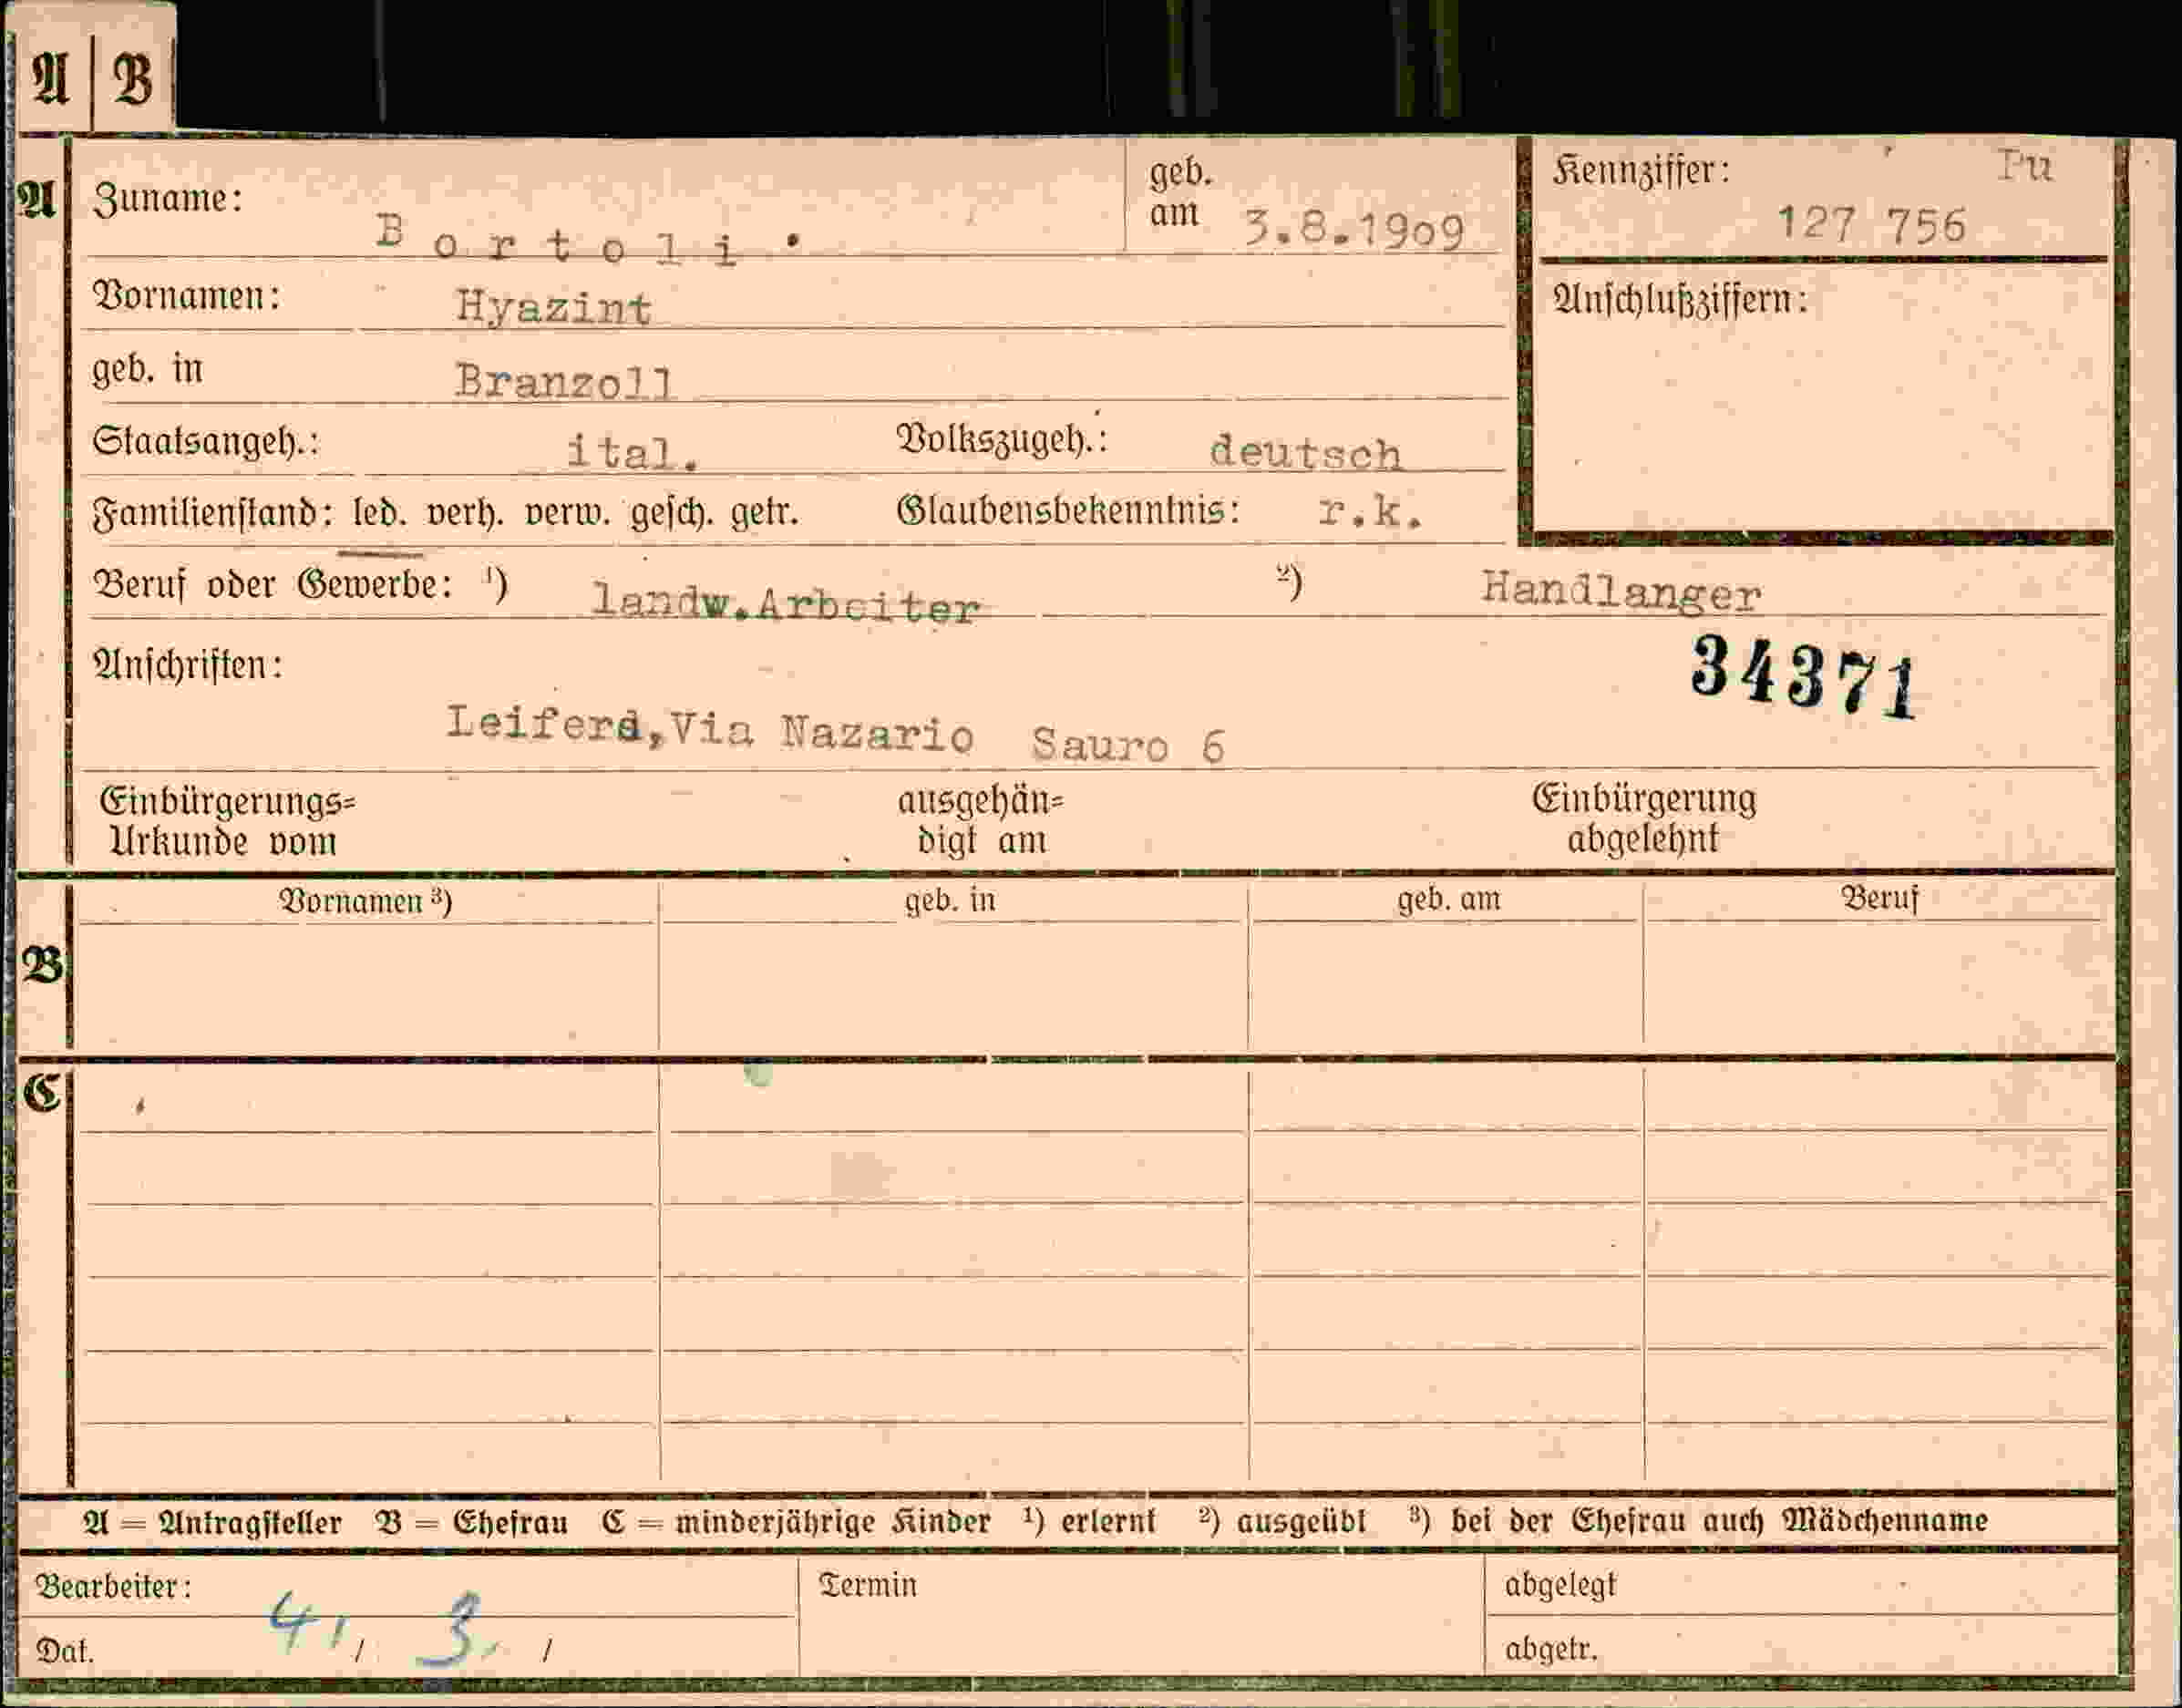 A B
A Zuname: Bortoli. geb. am 3.8.1909
Kennziffer: Pu
127 756
Vornamen: Hyazint
Anschlußziffern:
geb. in Branzoll
Staatsangeh.: ital. Volkszugeh.: deutsch
Familienstand: led. verh. verw. gesch. getr. Glaubensbekenntnis: r.k.
Beruf oder Gewerbe: ¹) landw.Arbeiter ²) Handlanger
34371
Anschriften:
Leifers,Via Nazario Sauro 6
Einbürgerungs= ausgehän= Einbürgerung
Urkunde vom digt am abgelehnt
Vornamen ³) geb. in geb. am Beruf
B
C
A = Antragsteller B = Ehefrau C = minderjährige Kinder ¹) erlernt ²) ausgeübt ³) bei der Ehefrau auch Mädchenname
Bearbeiter: Termin abgelegt
Dat. 4. / 3. / abgetr.